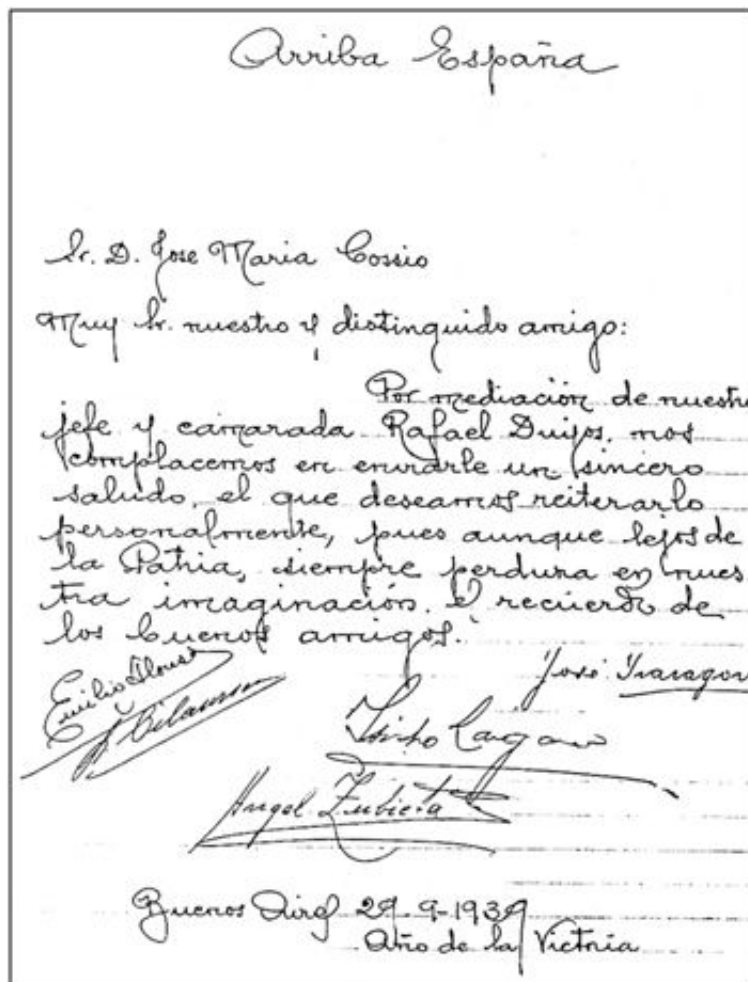 Arriba España
Sr. D. Jose Maria Cossio
Muy Sr. nuestro y distinguido amigo:
Por mediación de nuestro
jefe y camarada Rafael Duyos, nos
complacemos en enviarle un sincero
saludo, el que deseamos reiterarlo
personalmente, pues aunque lejos de
la Patria, siempre perdura en nues
tra imaginación el recuerdo de
los buenos amigos.
José Iraragorri
Emilio Alonso
Cilaurren
Angel Zubieta
Buenos Aires 29-9-1939
Año de la Victoria